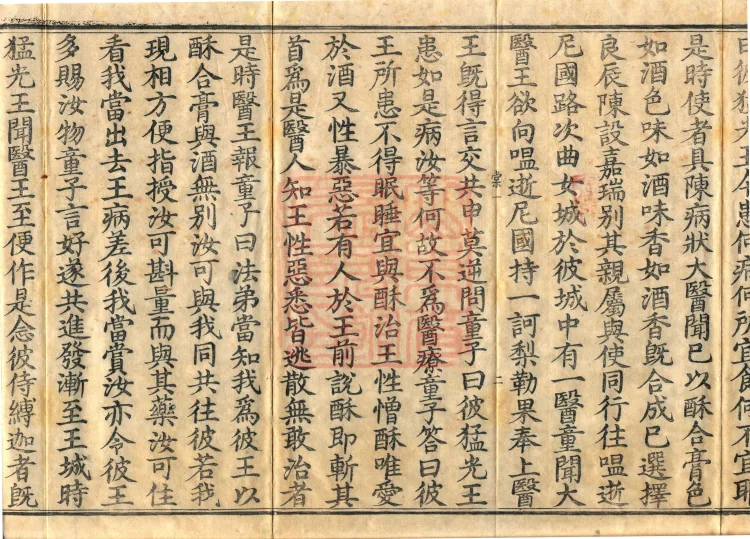 是時使者具陳病狀大醫聞已以酥合膏色
如酒色味如酒味香如酒香旣合成已選擇
良辰陳設嘉瑞別其親屬與使同行往嗢逝
尼國路次曲女城於彼城中有一醫童聞大
醫王欲向嗢逝尼國持一訶梨勒果奉上醫
棠 二
王旣得言交共申莫逆問童子曰彼猛光王
患如是病汝等何故不爲醫療童子答曰彼
王所患不得眠睡宜與酥治王性憎酥唯愛
於酒又性暴惡若有人於王前說酥即斬其
首爲是醫人知王性惡悉皆逃散無敢治者
是時醫王報童子曰法弟當知我爲彼王以
酥合膏與酒無別汝可與我同共往彼若我
現相方便指授汝可斟量而與其藥汝可住
看我當出去王病差後我當賞汝亦令彼王
多賜汝物童子言好遂共進發漸至王城時
猛光王聞醫王至便作是念彼侍縛迦者旣